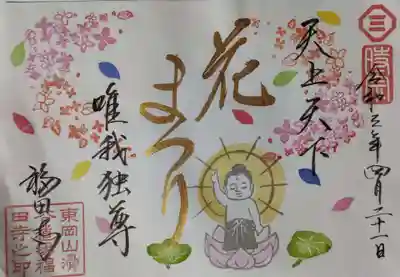 三
時宗
令和三年四月二十一日
天上天下
花まつり
唯我独尊
福田寺
東岡山
福
田寺之印